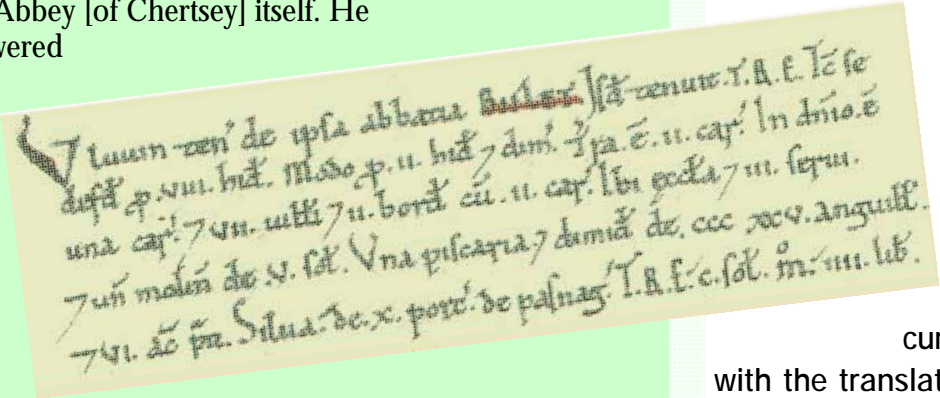 Abbey [of Chertsey] itself. He
wered
Vluuin ten' de ipsa abbatia Biflet. Ipsā tenuit. T.R.E. Tc̄ se
defd̄ p. viii. hid̄. Modo p. ii. hid̄ ⁊ dim̄. Tr̄a. ē. ii. car̄. In dn̄io. ē
una car̄. ⁊ vii. uilli ⁊ ii. bord̄ cū. ii. car̄. Ibi æccl̄a ⁊ iii. serui.
⁊ un̄ molin̄ de. v. sol̄. Vna piscaria ⁊ dimid̄ de. ccc xxv. anguill̄.
⁊ vi. āc p̄ti. Silua. de. x. porc̄. de pasnaḡ. T.R.E. c. sol̄. m̊. iiii. lib̄.
cur
with the translat